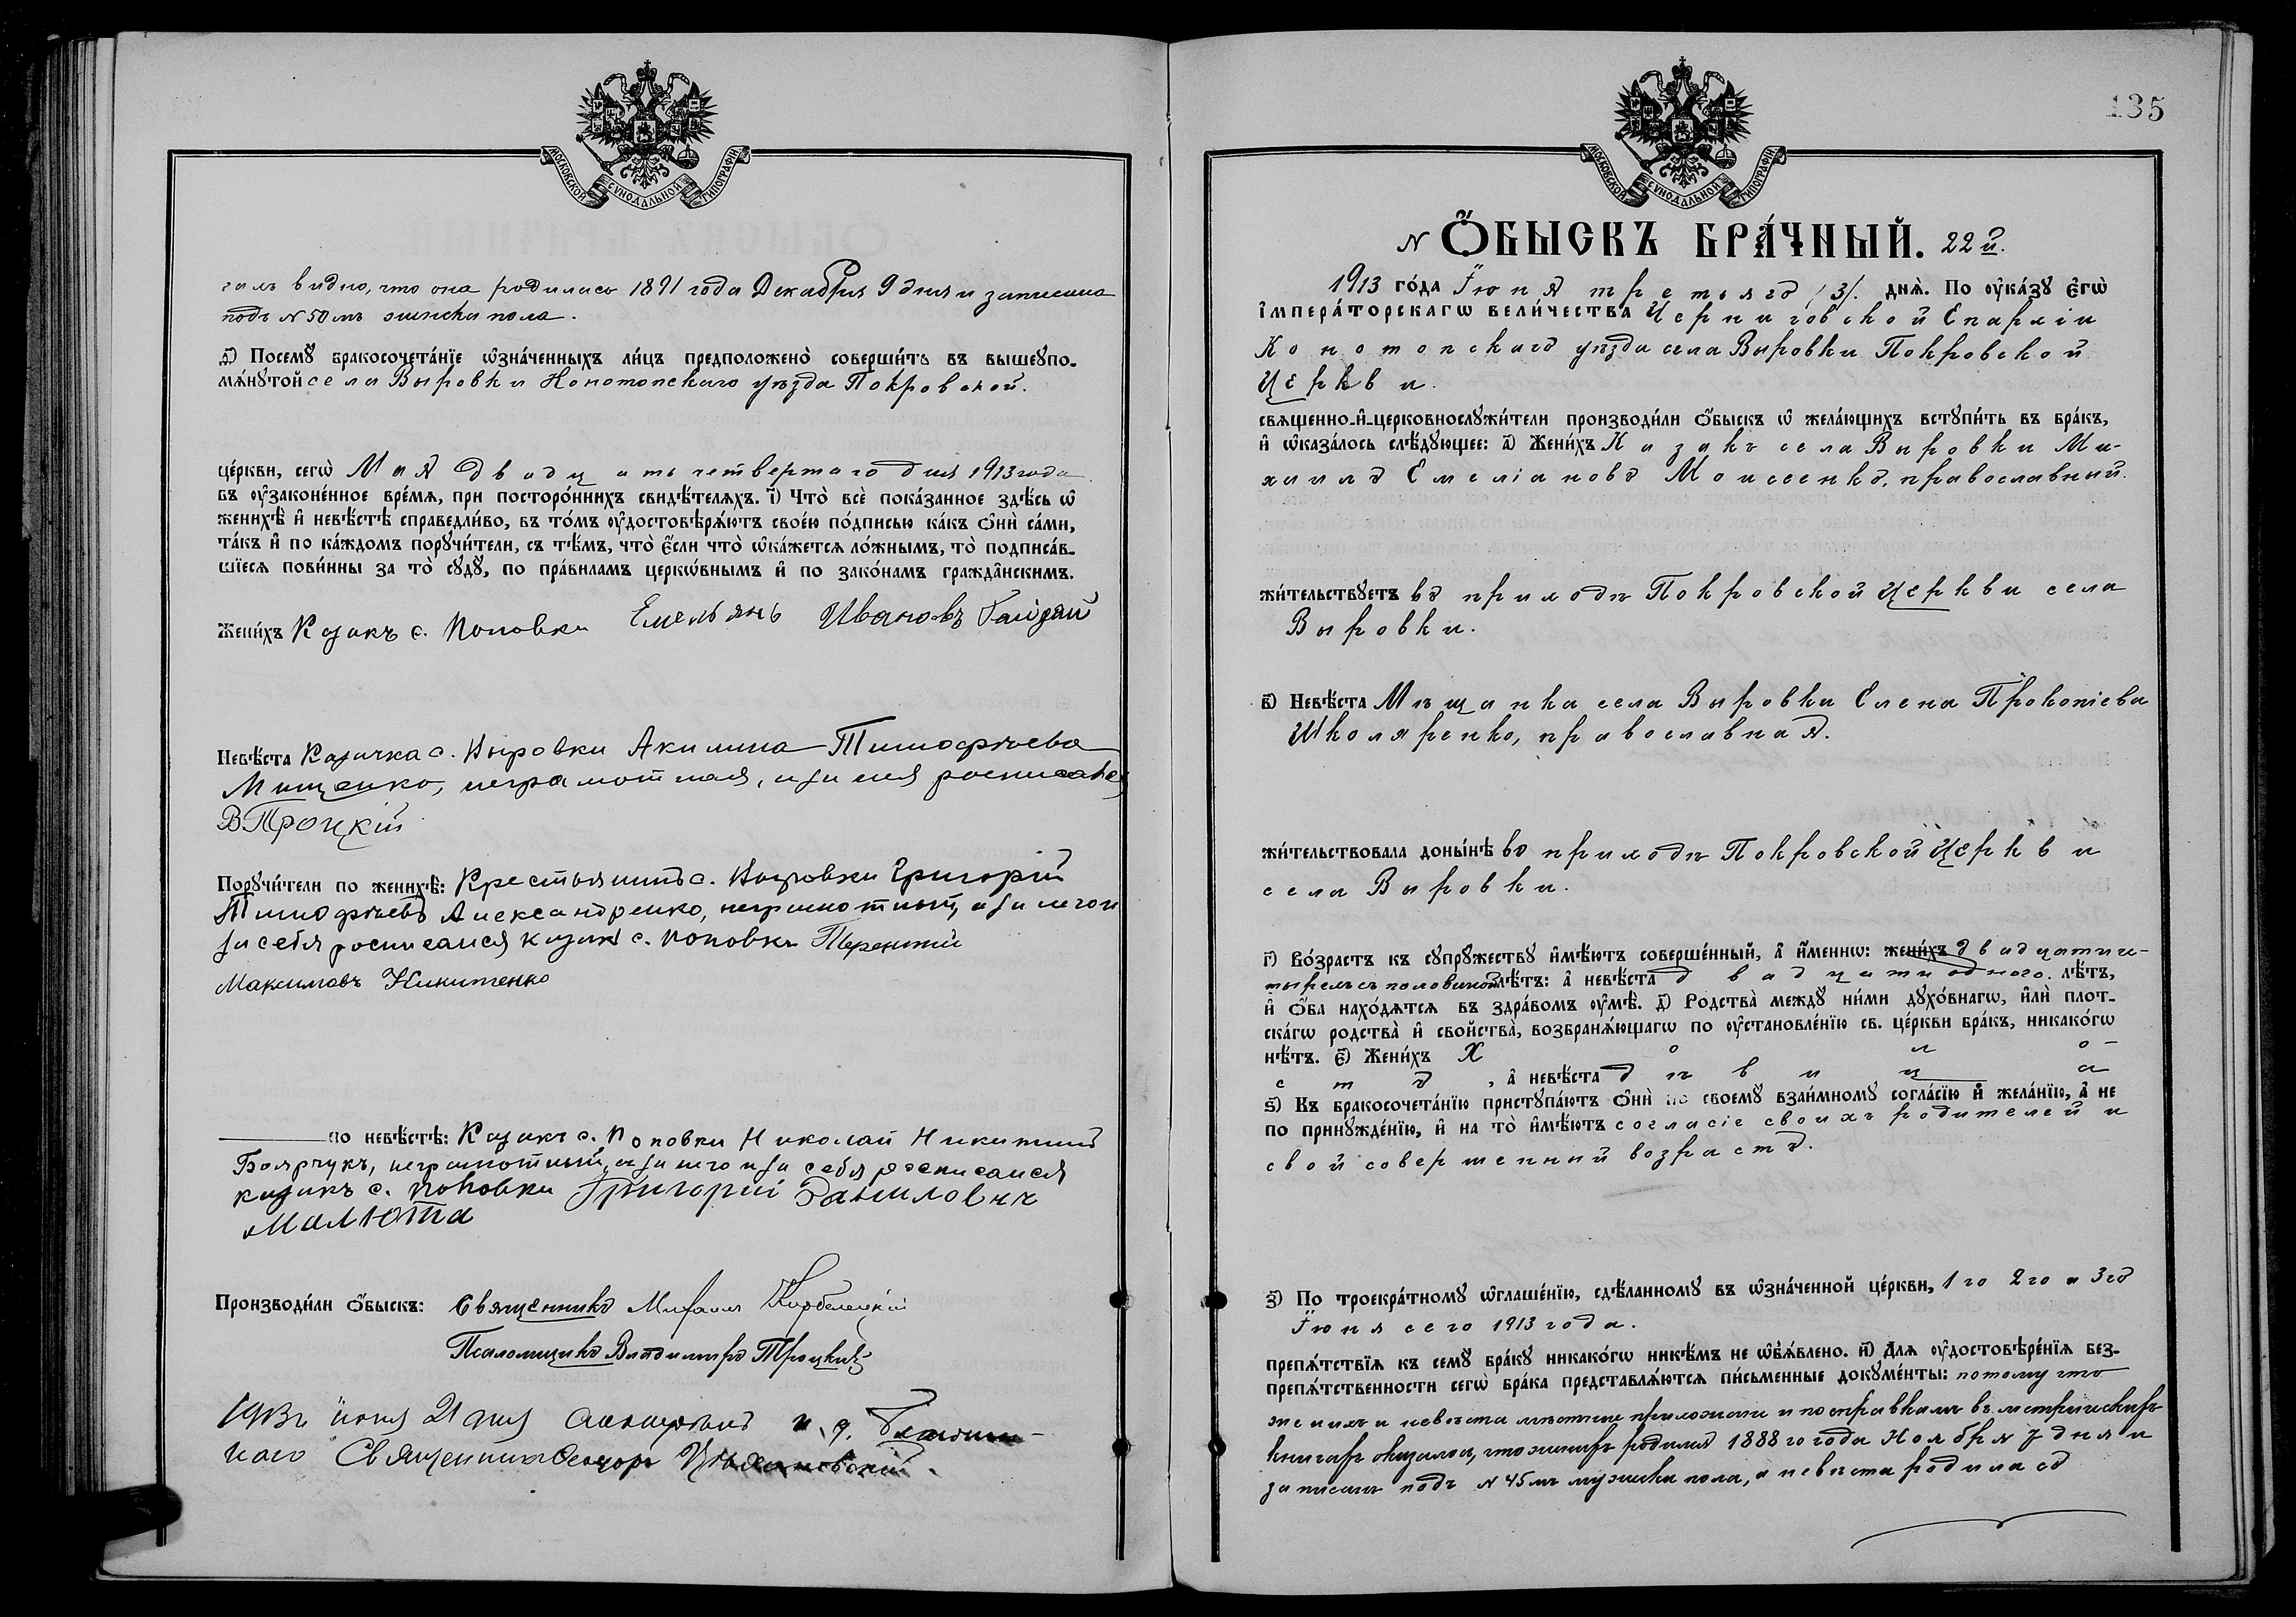 МОСКОВСКОЙ СѴНОДАЛЬНОЙ ТИПОГРАФІИ
гамъ видно, что она родилась 1891 года Декабря 9 дня и записана
подъ N 50мъ женска пола.
д҃) Посемꙋ бракосочета́нїе ѡ҆зна́ченныхъ ли́цъ предположено̀ соверши́ть въ вышеꙋпо-
мѧ́нꙋтой села Выровки Конотопскаго уѣзда Покровской.
це́ркви, сегѡ̀ Мая двадцать четвертаго дня 1913 года
въ ᲂу҆законе́нное вре́мѧ, при посторо́ннихъ свидѣ́телѧхъ. і҃) Что̀ всѐ пока́занное здѣ́сь ѡ҆
женихѣ̀ и҆ невѣ́стѣ справедли́во, въ то́мъ ᲂу҆достовѣрѧ́ютъ свое́ю по́дписью ка́къ ѻ҆нѝ са́ми,
та́къ и҆ по ка́ждомъ порꙋчи́тели, съ тѣ́мъ, что̀ є҆́сли что̀ ѡ҆ка́жетсѧ ло́жнымъ, то̀ подписа́в-
шїесѧ пови́нны за то̀ сꙋдꙋ̀, по пра́виламъ церкѡ́внымъ и҆ по зако́намъ гражда́нскимъ.
Жени́хъ Козакъ с. Поповки Емельянъ Ивановъ Гайдай
Невѣ́ста Козачка с. Выровки Акилина Тимофѣева
Мищенко, неграмотная, а за нея росписался
В. Троцкій
Порꙋчи́тели по женихѣ̀: Крестьянинъ с. Выровки Григорій
Тимофѣевъ Александренко, неграмотный, а за него и
за себя росписался козакъ с. Поповки Терентій
Максимовъ Никитенко
по невѣ́стѣ: Козакъ с. Поповки Николай Никитинъ
Боярчукъ, неграмотный, а за него и за себя росписался
козакъ с. Поповки Григорій Данилович
Малюта
Производи́ли ѻ҆́быскъ: Священникъ Михаилъ Корбелецкій
Псаломщикъ Владимиръ Троцкій
1913 г. іюня 21 дня и. д.
наго Священникъ
135
МОСКОВСКОЙ СѴНОДАЛЬНОЙ ТИПОГРАФІИ
N Ѻ҆́БЫСКЪ БРА́ЧНЫЙ. 22й.
1913 го́да Іюня третьяго /3/. днѧ̀. По ᲂу҆ка́зꙋ є҆гѡ̀
і҆мпера́торскагѡ вели́чества Черниговской Епархіи
Конотопскаго уѣзда села Выровки Покровской
Церкви.
свѧщенно-и҆-церковнослꙋжи́тели производи́ли ѻ҆́быскъ ѡ҆ жела́ющихъ встꙋпи́ть въ бра́къ,
и҆ ѡ҆каза́лось слѣ́дꙋющее: а҃) Жени́хъ Козакъ села Выровки Ми-
хаилъ Емеліановъ Моисеенко, православный.
жи́тельствꙋетъ въ приходѣ Покровской Церкви села
Выровки.
в҃) Невѣ́ста Мѣщанка села Выровки Елена Прокопіева
Школяренко, православная.
жи́тельствовала доны́нѣ въ приходѣ Покровской Церкви
села Выровки.
г҃) Во́зрастъ къ сꙋпрꙋ́жествꙋ и҆мѣ́ютъ соверше́нный, а҆ и҆́меннѡ: жени́хъ двадцати че-
тырехъ съ половиною лѣ́тъ: а҆ невѣ́ста двадцати одного. лѣ́тъ,
и҆ ѻ҆́ба нахо́дѧтсѧ въ здра́вомъ ᲂу҆мѣ̀. д҃) Родства̀ междꙋ ни́ми дꙋхо́внагѡ, и҆лѝ плот-
ска́гѡ родства̀ и҆ свойства̀, возбранѧ́ющагѡ по ᲂу҆становле́нїю св. це́ркви бра́къ, никако́гѡ
нѣ́тъ. є҃) Жени́хъ Холо-
стъ, а҆ невѣ́ста дѣвица
ѕ҃) Къ бракосочета́нїю пристꙋпа́ютъ ѻ҆нѝ по своемꙋ̀ взаи́мномꙋ согла́сїю и҆ жела́нїю, а҆ не
по принꙋжде́нїю, и҆ на то̀ и҆мѣ́ютъ согласіе своихъ родителей и
свой совершенный возрастъ.
з҃) По троекра́тномꙋ ѡ҆глаше́нїю, сдѣ́ланномꙋ въ ѡ҆зна́ченной це́ркви, 1го 2го и 3го
Іюня сего 1913 года.
препѧ́тствїѧ къ семꙋ̀ бра́кꙋ никако́гѡ никѣ́мъ не ѡ҆б̾ѧ́влено. и҃) Длѧ ᲂу҆достовѣре́нїѧ без-
препѧ́тственности сегѡ̀ бра́ка представлѧ́ютсѧ пи́сьменные докꙋме́нты: потому что
женихъ и невѣста мѣстные прихожане и по справкамъ въ метрическихъ
книгахъ оказалось, что женихъ родился 1888го года Ноября 7 дня и
записанъ подъ N 45мъ мужска пола, а невѣста родилась